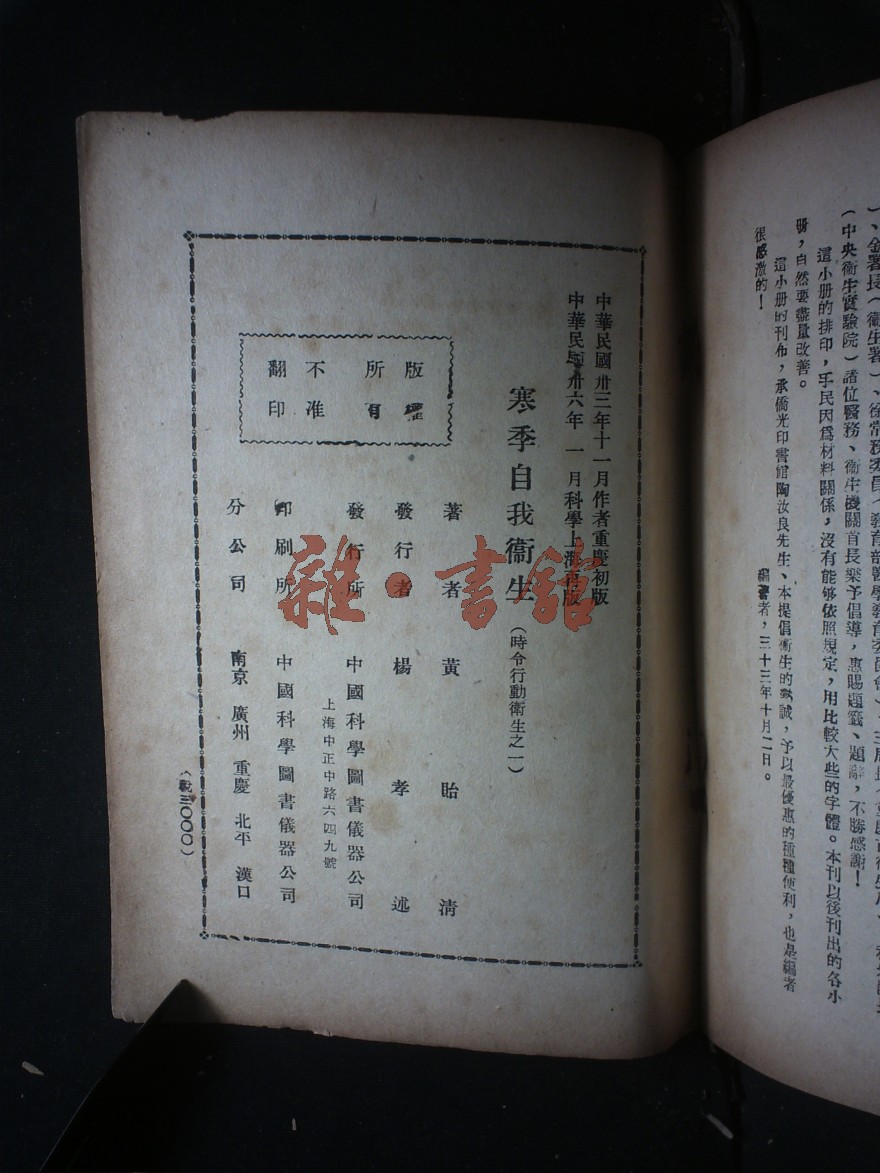 (中央衞生實驗院)諸位醫務、衞生機關首長樂予倡導,惠賜題籤、題辭,不勝感謝!
這小册的排印,手民因爲材料關係,沒有能够依照規定,用比較大些的字體。本刊以後刊出的各小
册,自然要盡量改善。
這小册的刊布,承僑光印書館陶汝良先生、本提倡衞生的熱誠,予以最優惠的種種便利,也是編者
很感激的!
編著者,三十三年十月二日。
中華民國卅三年十一月作者重慶初版
中華民國卅六年 一月科學上海再版
寒季自我衞生(時令行動衞生之一)
版權所有
不准翻印
著者 黃貽清
發行者 楊孝述
發行所 中國科學圖書儀器公司
上海中正中路六四九號
印刷所 中國科學圖書儀器公司
分公司 南京 廣州 重慶 北平 漢口
三〇〇〇)
雜·書館